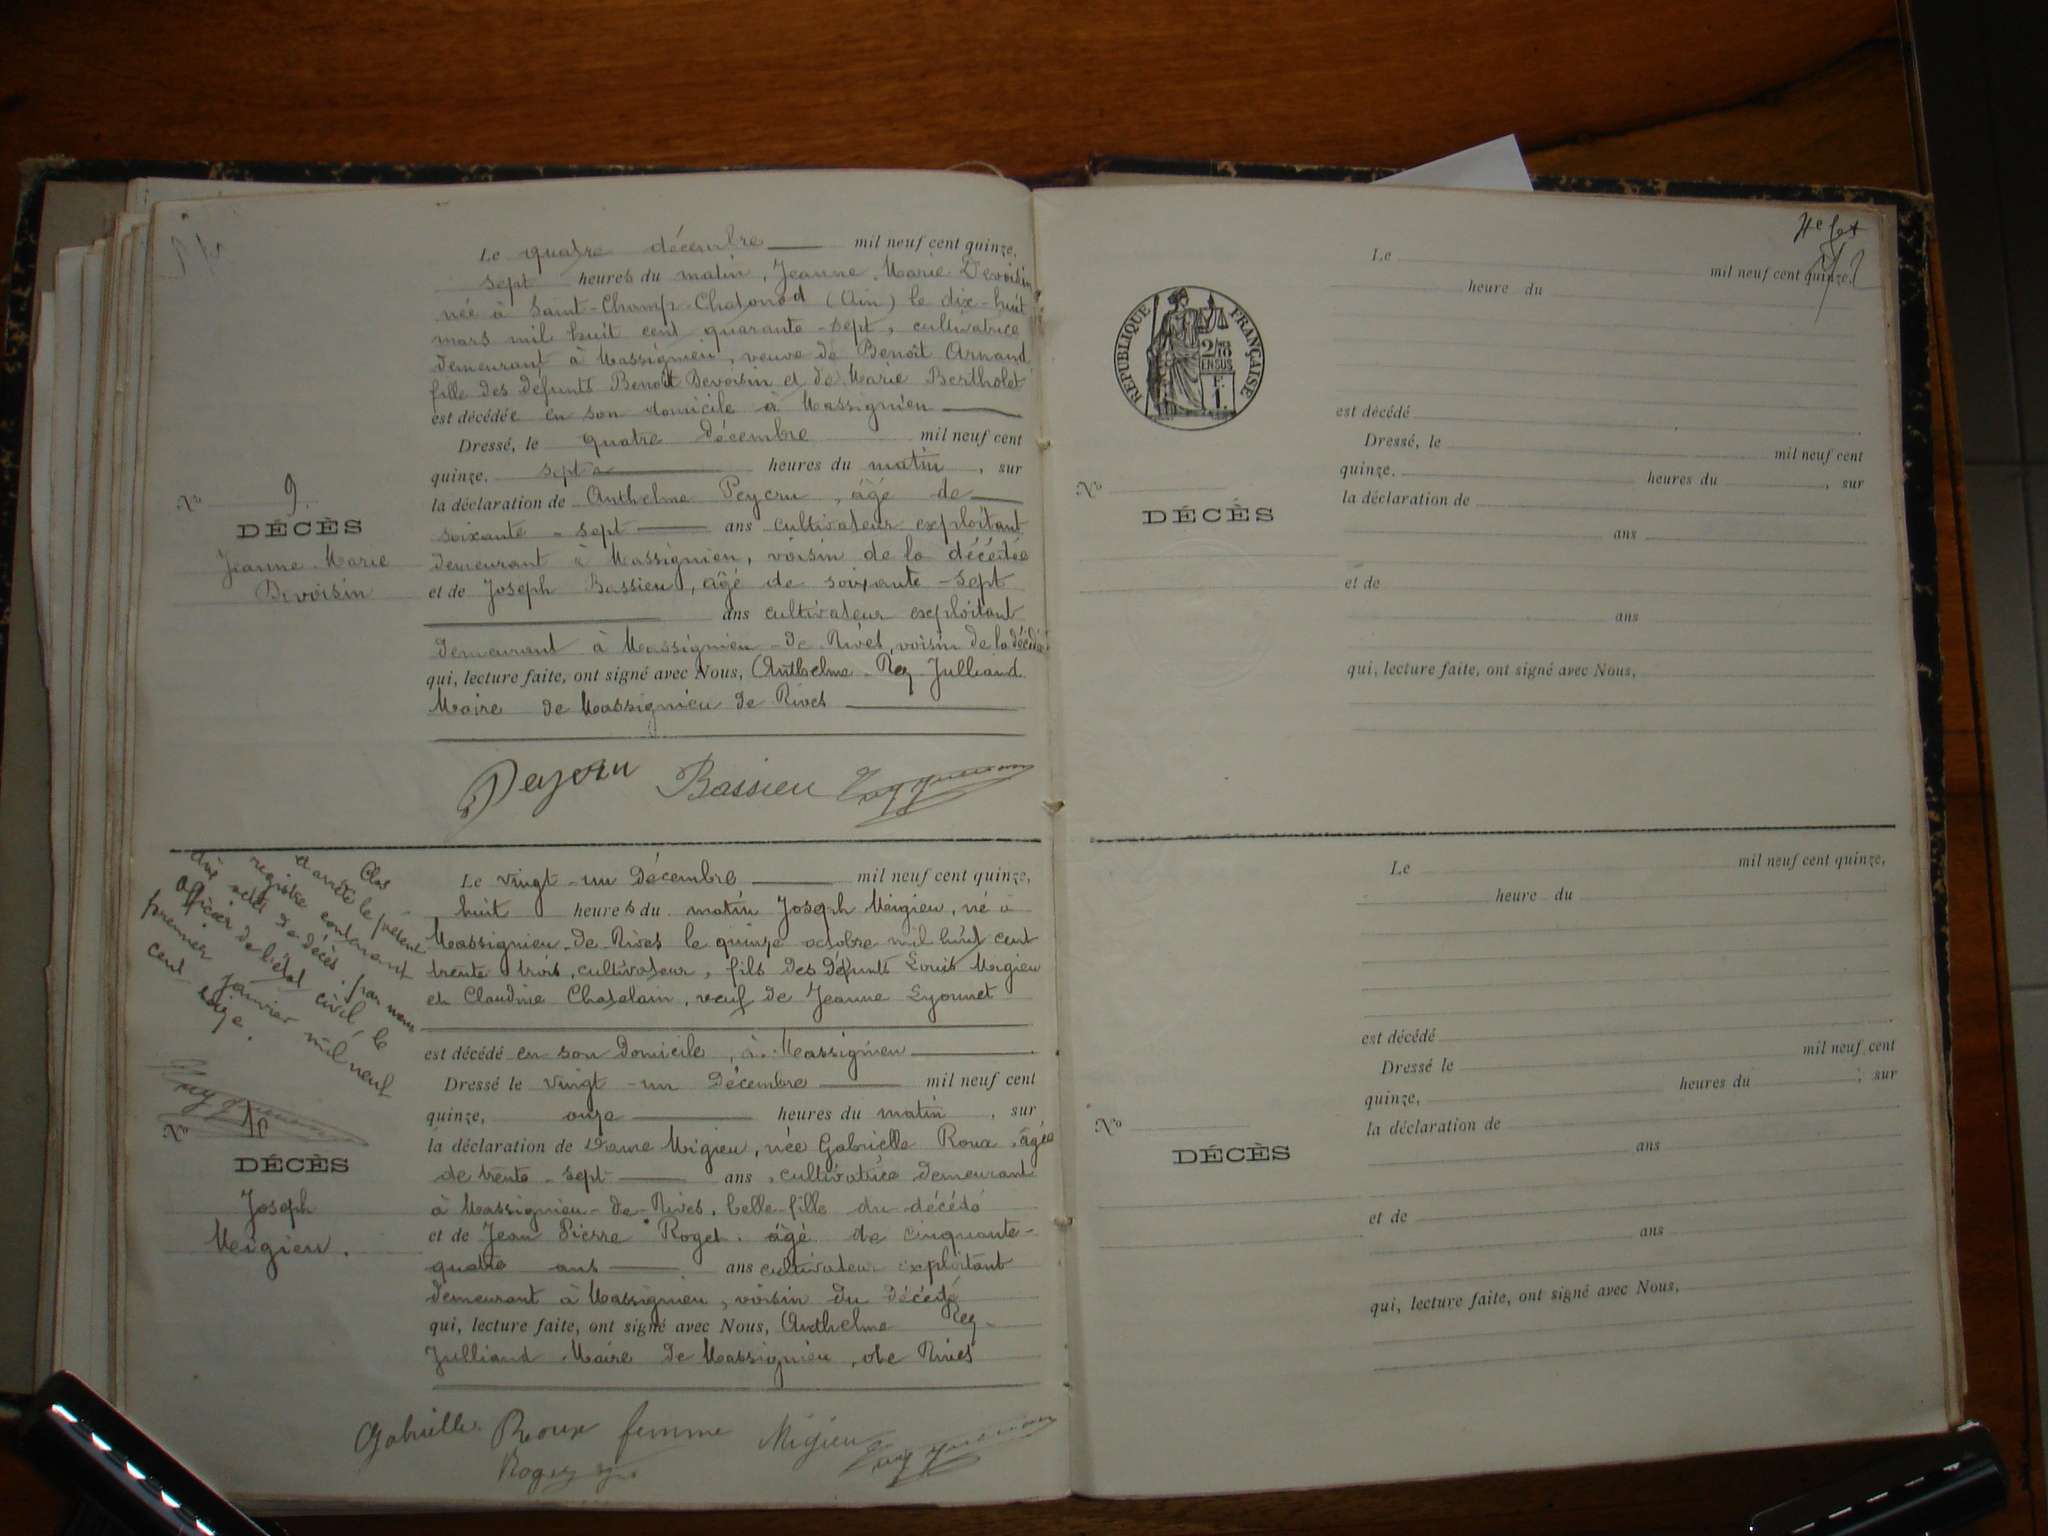 Le quatre décembre mil neuf cent quinze,
sept heures du matin, Jeanne Marie Devoisin
née à Saint-Champ-Chatonod (Ain) le dix-huit
mars mil huit cent quarante-sept, cultivatrice
demeurant à Massignieu, veuve de Benoît Arnaud
fille des défunts Benoît Devoisin et de Marie Bertholet
est décédée en son domicile à Massignieu
Dressé, le quatre Décembre mil neuf cent
quinze, sept heures du matin, sur
la déclaration de Anthelme Peycru, âgé de
soixante-sept ans cultivateur exploitant
demeurant à Massignieu, voisin de la décédée
et de Joseph Bassieu, âgé de soixante-sept
ans cultivateur exploitant
demeurant à Massignieu-de-Rives, voisin de la décédée
qui, lecture faite, ont signé avec Nous, Anthelme Rey Julliand
Maire de Massignieu de Rives
No 9
DÉCÈS
Jeanne Marie
Devoisin
Peycru Bassieu
Clos
et arrêté le présent
registre contenant
dix actes de décès, par nous
officier de l'état civil, le
premier janvier mil neuf
cent seize.
Le vingt-un Décembre mil neuf cent quinze,
huit heures du matin Joseph Migieu, né à
Massignieu-de-Rives le quinze octobre mil huit cent
trente trois, cultivateur, fils des défunts Louis Migieu
et Claudine Chatelain, veuf de Jeanne Lyonnet
est décédé en son Domicile, à Massignieu
Dressé le vingt-un Décembre mil neuf cent
quinze, onze heures du matin, sur
la déclaration de Dame Migieu, née Gabrielle Roux, âgée
de trente-sept ans, cultivatrice demeurant
à Massignieu-de-Rives, belle-fille du décédé
et de Jean Pierre Roget, âgé de cinquante-
quatre ans ans cultivateur exploitant
demeurant à Massignieu, voisin du décédé
qui, lecture faite, ont signé avec Nous, Anthelme Rey
Julliand Maire de Massignieu, de Rives
No 10
DÉCÈS
Joseph
Migieu.
Gabrielle Roux femme Migieu
RÉPUBLIQUE FRANÇAISE
2/10
EN SUS
1 F.
Le mil neuf cent quinze,
heure du
est décédé
Dressé, le mil neuf cent
quinze, heures du , sur
la déclaration de
ans
et de
ans
qui, lecture faite, ont signé avec Nous,
No
DÉCÈS
Le mil neuf cent quinze,
heure du
est décédé
Dressé le mil neuf cent
quinze, heures du , sur
la déclaration de
ans
et de
ans
qui, lecture faite, ont signé avec Nous,
No
DÉCÈS